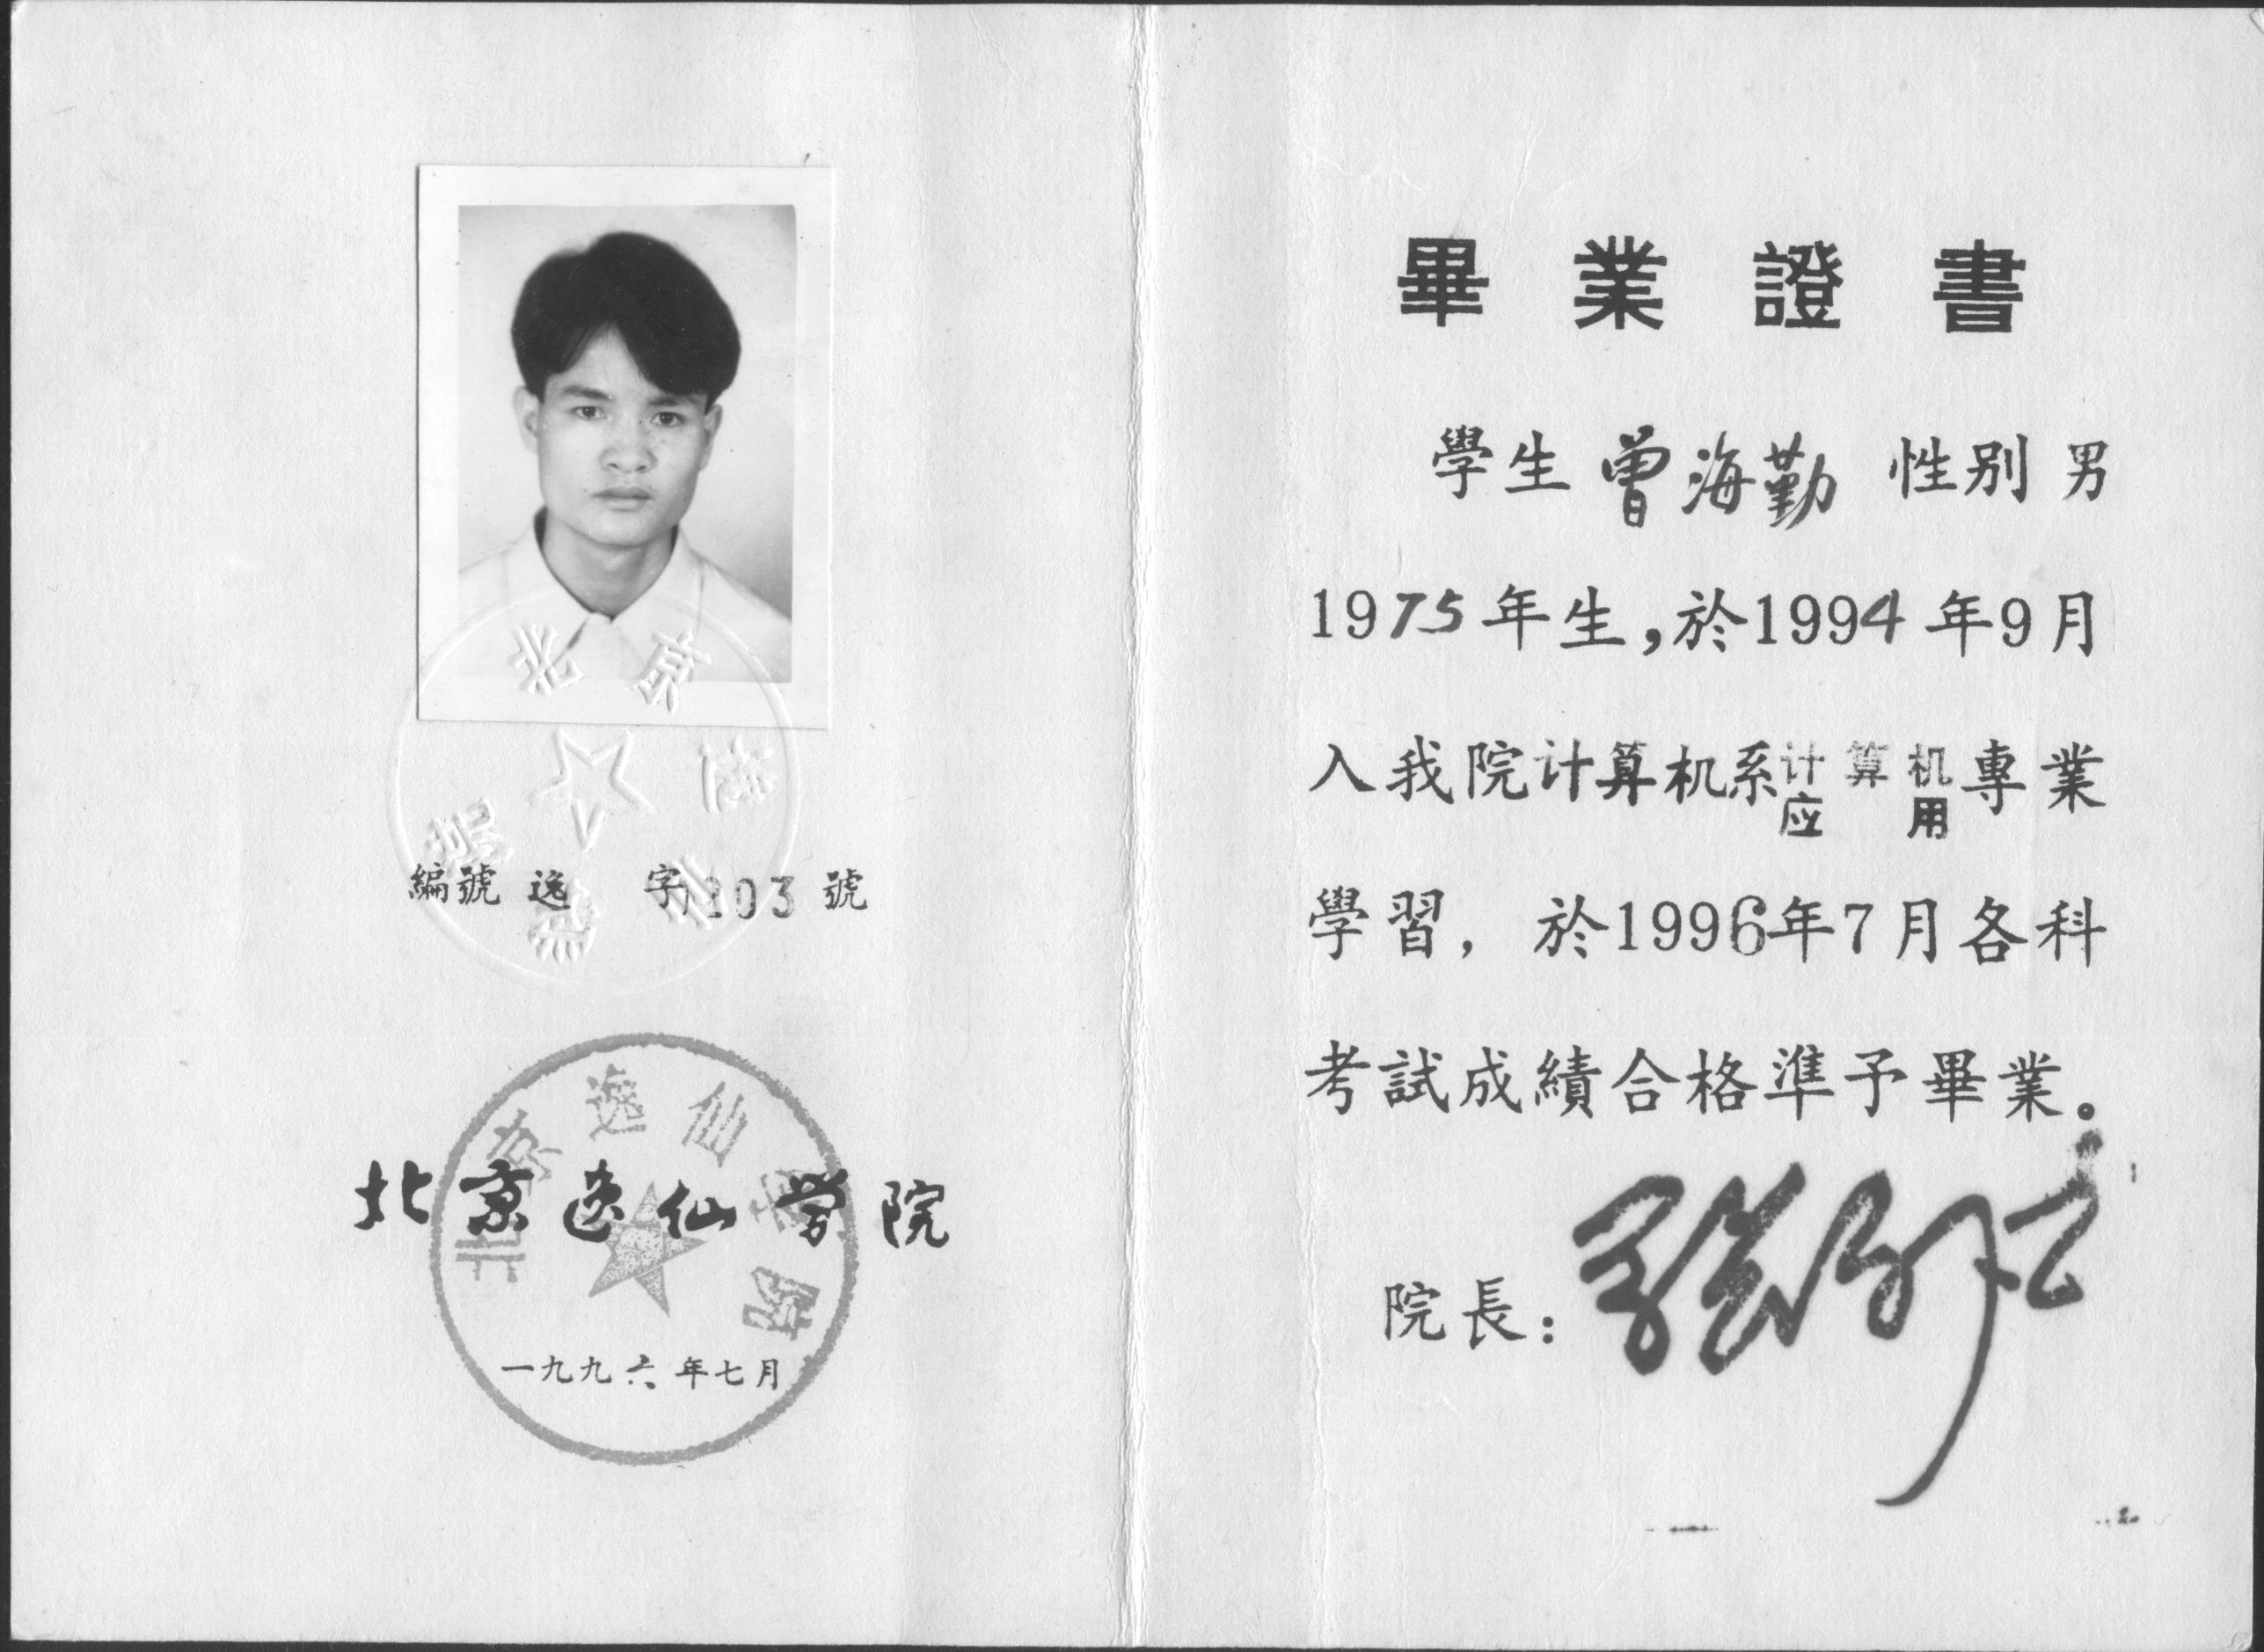 北京逸仙學院
編號 逸 字1203號
北京逸仙学院
北京逸仙學院
一九九六年七月
畢業證書
學生 曾海勤 性别 男
1975年生,於1994年9月
入我院计算机系计算机应用專業
學習，於1996年7月各科
考試成績合格準予畢業。
院長：